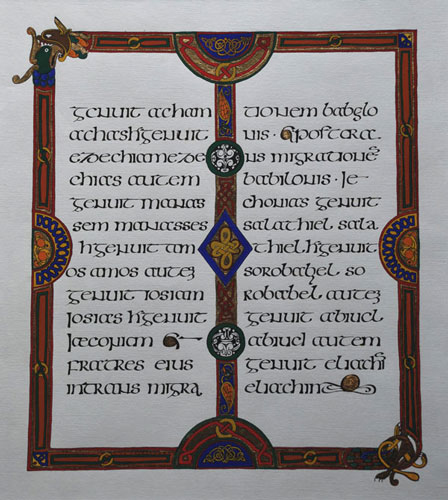 genuit acham
achashgenuit
ezechiameze
chias autem
genuit manas
sem manasses
hgenuit am
os amos autez
genuit iosiam
Iosias hgenuit
Iaeconiam
fratres eius
intrans migra
tionem babylo
nis · & post trae
ns migratione
babilonis · Ie
chonias genuit
salathiel sala
thiel hgenuit
sorobabel so
Robabel autez
genuit abiuel
abiuel autem
genuit eliachi
eliachin